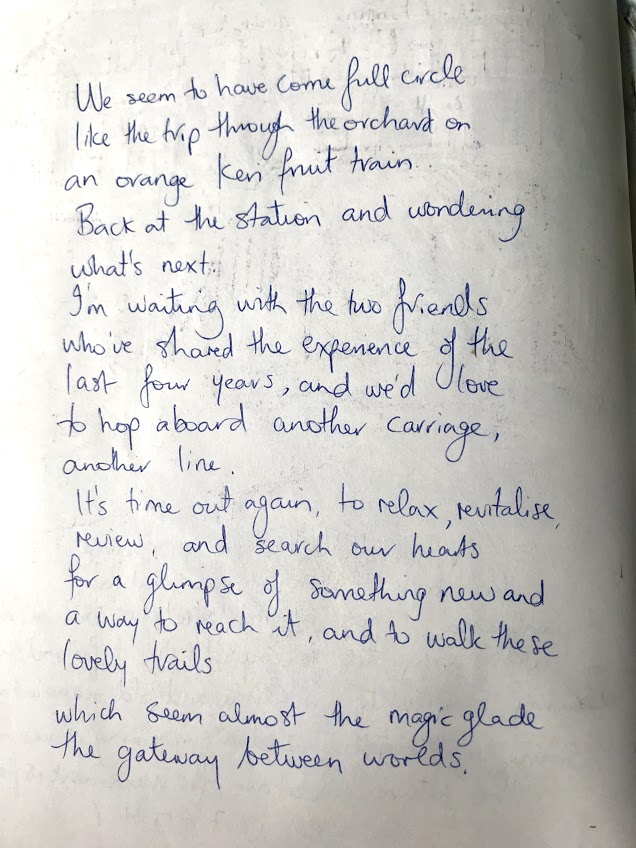 We seem to have come full circle
like the trip through the orchard on
an orange Ken fruit train.
Back at the station and wondering
what's next.
I'm waiting with the two friends
who've shared the experience of the
last four years, and we'd love
to hop aboard another carriage,
another line.
It's time out again, to relax, revitalise,
review, and search our hearts
for a glimpse of something new and
a way to reach it, and to walk these
lovely trails
which seem almost the magic glade
the gateway between worlds.